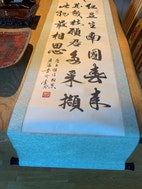 紅豆生南國春来
發幾枝願君多采擷
此物最相思